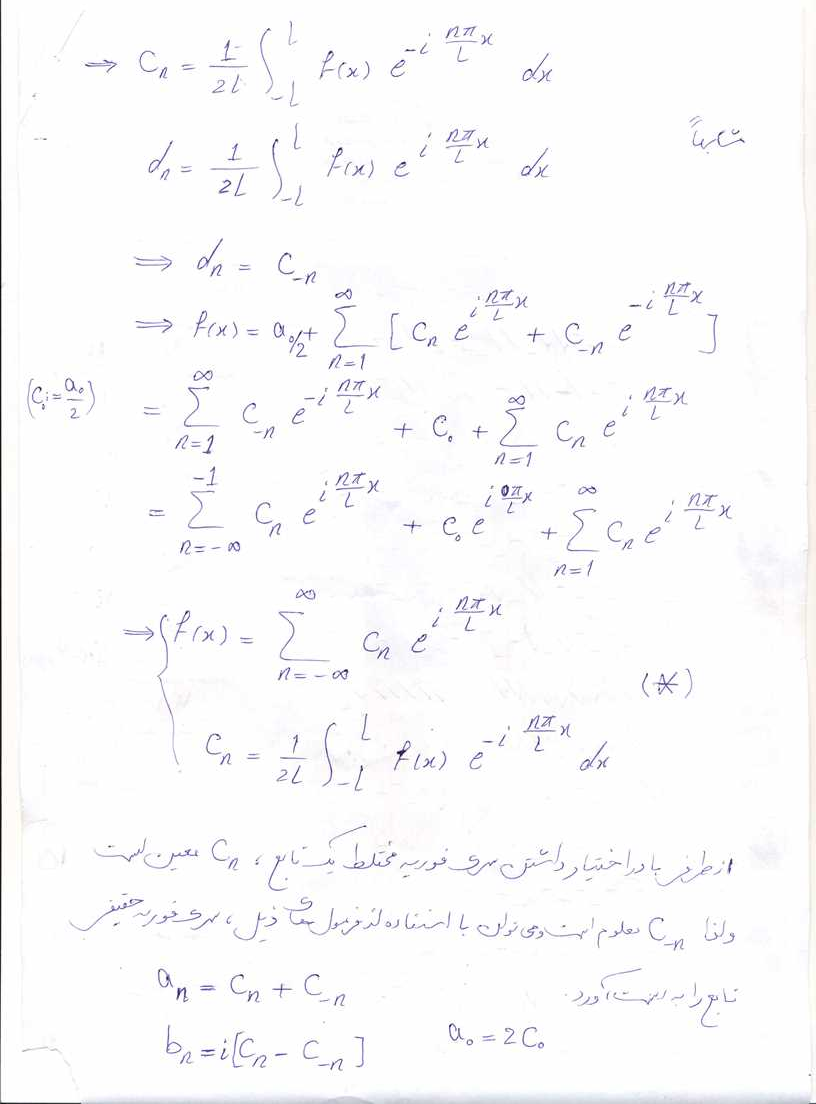 ⇒ Cₙ = 1/2L ∫_{-L}^{L} f(x) e^{-i nπ/L x} dx
متشابهاً
dₙ = 1/2L ∫_{-L}^{L} f(x) e^{i nπ/L x} dx
⇒ dₙ = C₋ₙ
⇒ f(x) = a₀/2 + ∑_{n=1}^{∞} [ Cₙ e^{i nπ/L x} + C₋ₙ e^{-i nπ/L x} ]
(C₀ := a₀/2) = ∑_{n=1}^{∞} C₋ₙ e^{-i nπ/L x} + C₀ + ∑_{n=1}^{∞} Cₙ e^{i nπ/L x}
= ∑_{n=-∞}^{-1} Cₙ e^{i nπ/L x} + C₀ e^{i 0π/L x} + ∑_{n=1}^{∞} Cₙ e^{i nπ/L x}
⇒ { f(x) = ∑_{n=-∞}^{∞} Cₙ e^{i nπ/L x}
(*)
Cₙ = 1/2L ∫_{-L}^{L} f(x) e^{-i nπ/L x} dx
از طرفی با در اختیار داشتن سری فوریه مختلط یک تابع، Cₙ معین است
ولذا C₋ₙ معلوم است و می توان با استفاده از فرمول های ذیل، سری فوریه حقیقی
تابع را به دست آورد.
aₙ = Cₙ + C₋ₙ
bₙ = i[Cₙ - C₋ₙ] a₀ = 2C₀